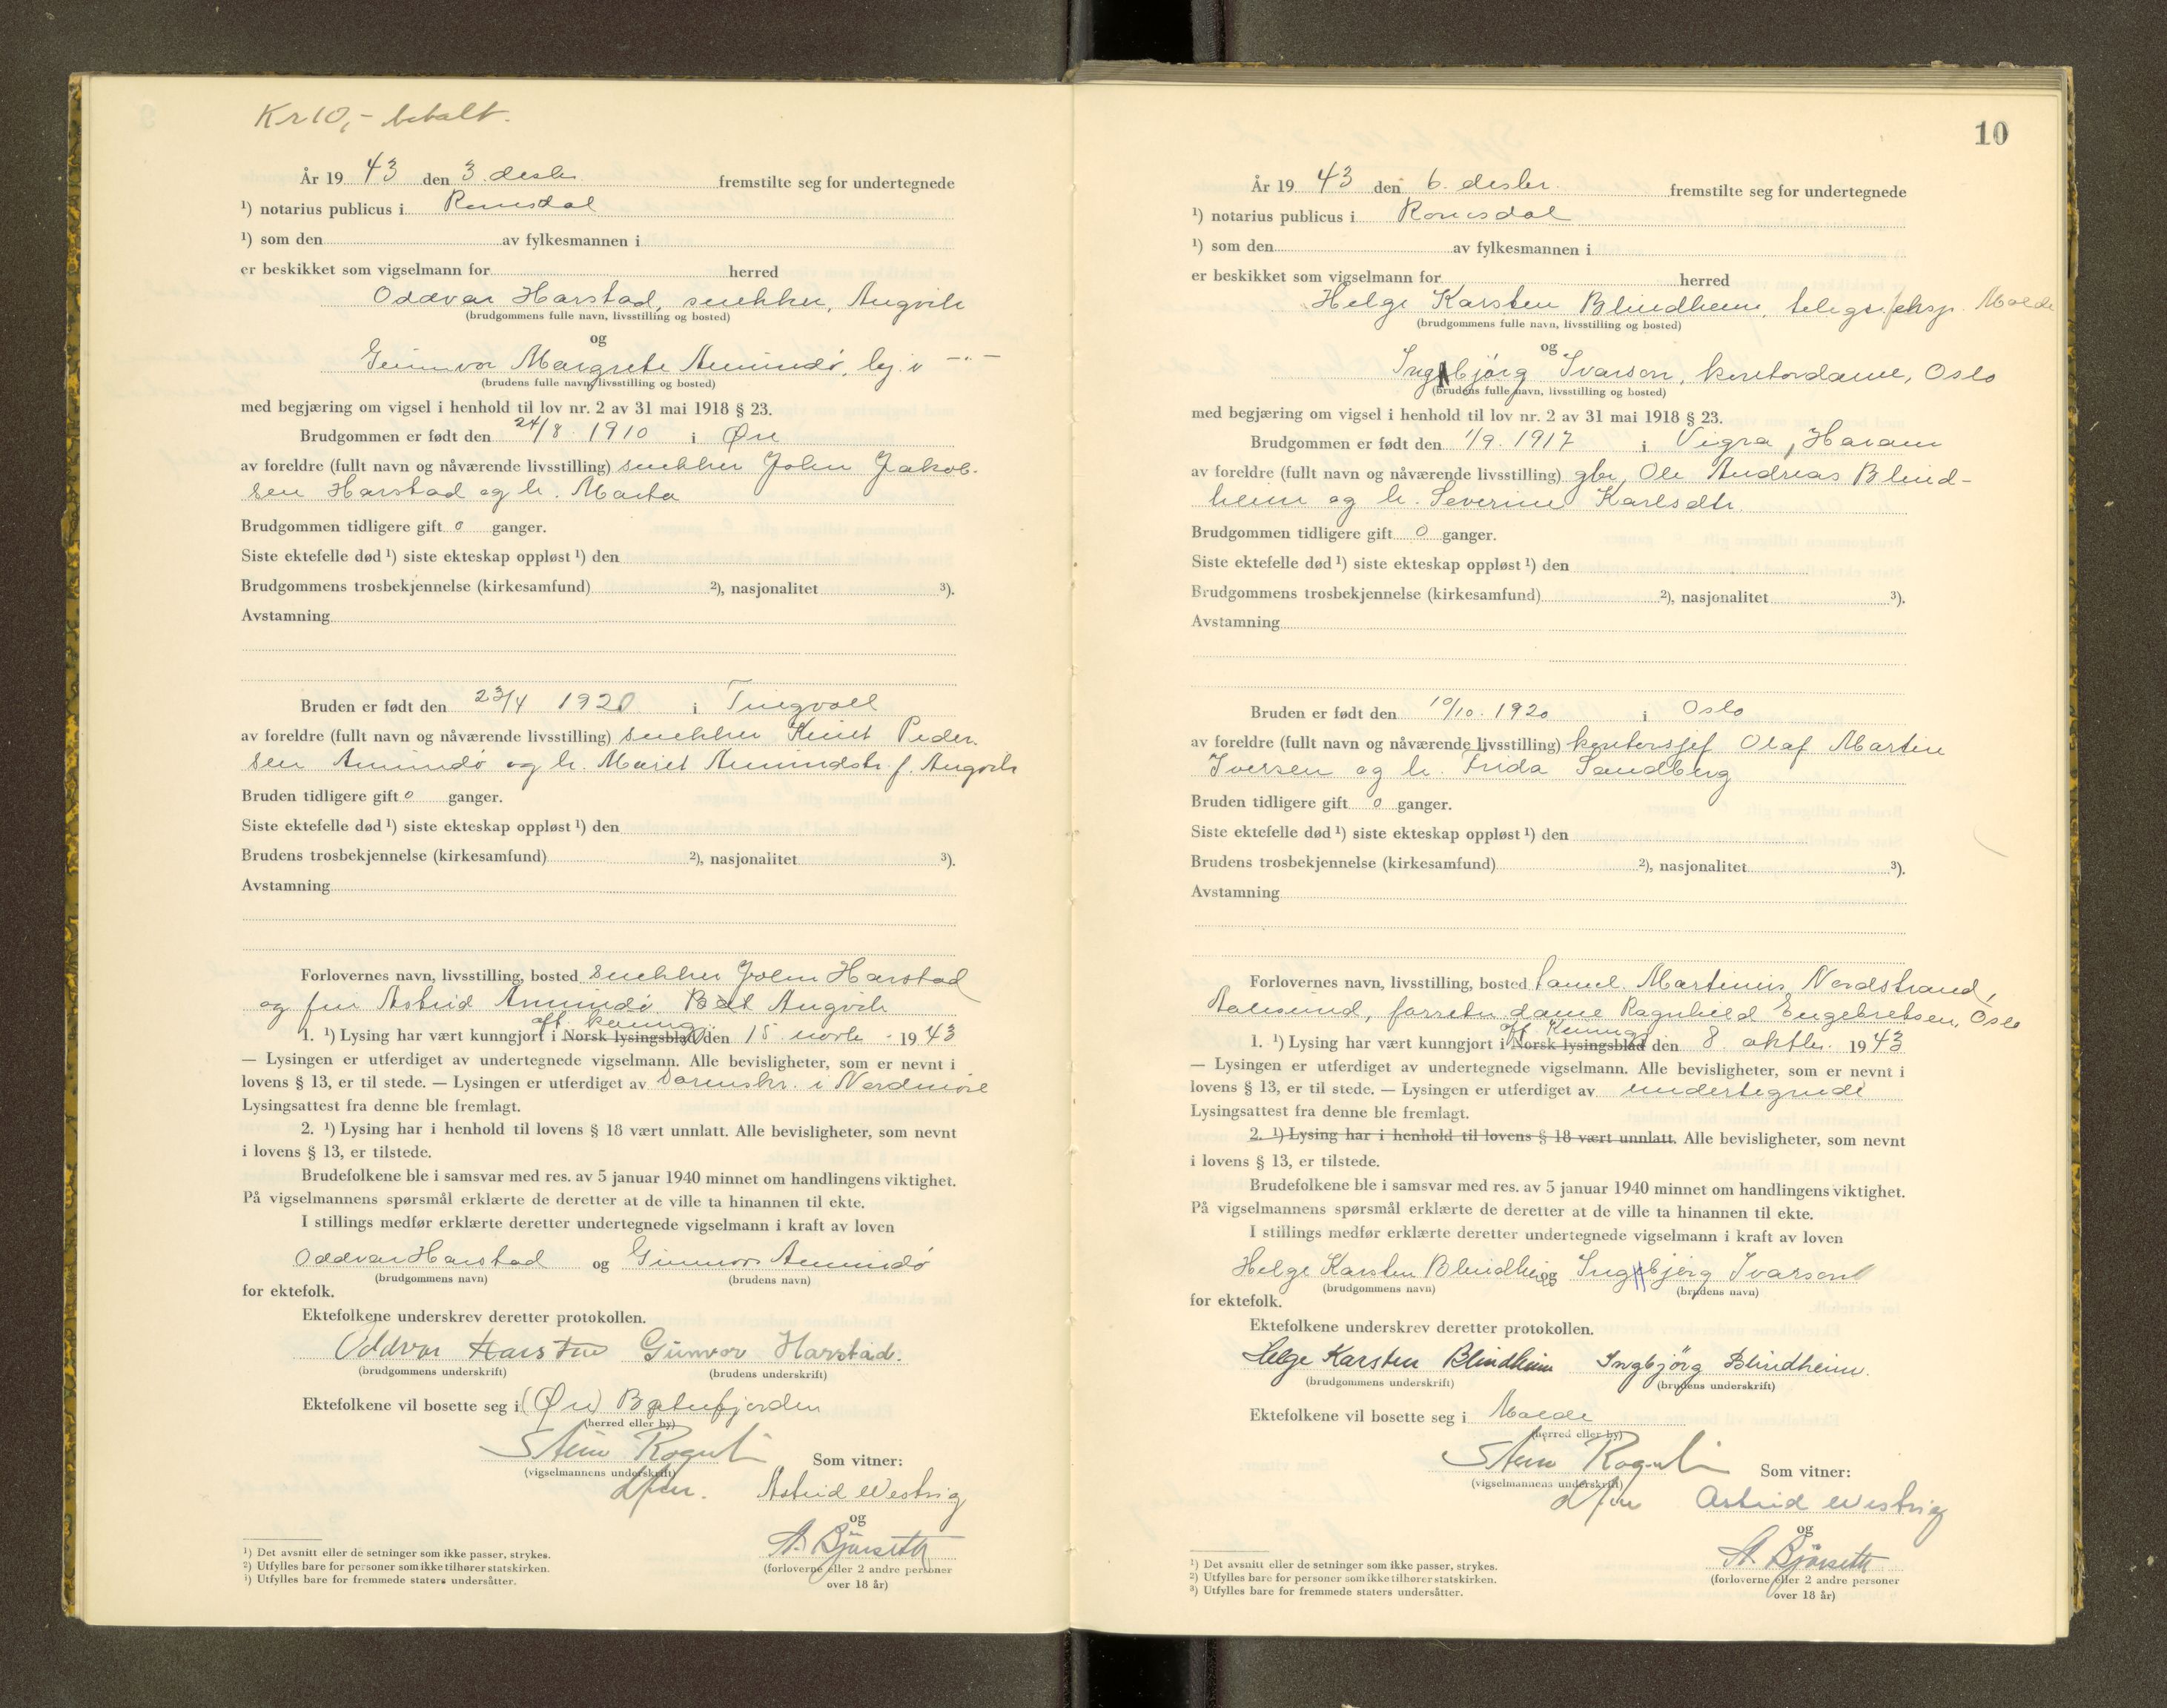 Kr 10,- betalt.
År 19 43 den 3. desbr. fremstilte seg for undertegnede
¹) notarius publicus i Romsdal
¹) som den av fylkesmannen i
er beskikket som vigselmann for herred
Oddvar Harstad, snekker, Angvik
(brudgommens fulle navn, livsstilling og bosted)
og
Gunnvor Margrete Amundö, bej. i -"-
(brudens fulle navn, livsstilling og bosted)
med begjæring om vigsel i henhold til lov nr. 2 av 31 mai 1918 § 23.
Brudgommen er født den 24/8. 1910 i Øre
av foreldre (fullt navn og nåværende livsstilling) snekker John Jakob-
sen Harstad og h. Marta
Brudgommen tidligere gift 0 ganger.
Siste ektefelle død ¹) siste ekteskap oppløst ¹) den
Brudgommens trosbekjennelse (kirkesamfund) ²), nasjonalitet ³).
Avstamning
Bruden er født den 23/4 1920 i Tingvoll
av foreldre (fullt navn og nåværende livsstilling) snekker Knut Peder-
sen Amundö og h. Marit Amundstr. f. Angvik
Bruden tidligere gift 0 ganger.
Siste ektefelle død ¹) siste ekteskap oppløst ¹) den
Brudens trosbekjennelse (kirkesamfund) ²), nasjonalitet ³).
Avstamning
Forlovernes navn, livsstilling, bosted snekker John Harstad
og fru Astrid Amundö Angvik
off. kunng.
1. ¹) Lysing har vært kunngjort i Norsk lysingsblad den 15. novbr. 19 43
— Lysingen er utferdiget av undertegnede vigselmann. Alle bevisligheter, som er nevnt i
lovens § 13, er til stede. — Lysingen er utferdiget av sorenskr. i Nordmöre
Lysingsattest fra denne ble fremlagt.
2. ¹) Lysing har i henhold til lovens § 18 vært unnlatt. Alle bevisligheter, som nevnt
i lovens § 13, er tilstede.
Brudefolkene ble i samsvar med res. av 5 januar 1940 minnet om handlingens viktighet.
På vigselmannens spørsmål erklærte de deretter at de ville ta hinannen til ekte.
I stillings medfør erklærte deretter undertegnede vigselmann i kraft av loven
Oddvar Harstad og Gunnvor Amundö
(brudgommens navn) (brudens navn)
for ektefolk.
Ektefolkene underskrev deretter protokollen.
Oddvar Harstad Gunvor Harstad.
(brudgommens underskrift) (brudens underskrift)
Ektefolkene vil bosette seg i (Øre) Batnfjorden
(herred eller by)
Stein Rognli
(vigselmannens underskrift) Som vitner:
dfm. Astrid Westvig
og
A. Björseth
(forloverne eller 2 andre personer
over 18 år)
¹) Det avsnitt eller de setninger som ikke passer, strykes.
²) Utfylles bare for personer som ikke tilhører statskirken.
³) Utfylles bare for fremmede staters undersåtter.
10
År 19 43 den 6. desbr. fremstilte seg for undertegnede
¹) notarius publicus i Romsdal
¹) som den av fylkesmannen i
er beskikket som vigselmann for herred
Helge Karsten Blindheim, telegr.eksp. Molde
(brudgommens fulle navn, livsstilling og bosted)
og
Ingbjörg Ivarson, kontordame, Oslo
(brudens fulle navn, livsstilling og bosted)
med begjæring om vigsel i henhold til lov nr. 2 av 31 mai 1918 § 23.
Brudgommen er født den 1/9. 1917 i Vigra, Haram
av foreldre (fullt navn og nåværende livsstilling) gbr. Ole Andreas Blind-
heim og h. Severine Karlsdtr.
Brudgommen tidligere gift 0 ganger.
Siste ektefelle død ¹) siste ekteskap oppløst ¹) den
Brudgommens trosbekjennelse (kirkesamfund) ²), nasjonalitet ³).
Avstamning
Bruden er født den 10/10. 1920 i Oslo
av foreldre (fullt navn og nåværende livsstilling) kontorsjef Olaf Martin
Iversen og h. Frida Sandberg
Bruden tidligere gift 0 ganger.
Siste ektefelle død ¹) siste ekteskap oppløst ¹) den
Brudens trosbekjennelse (kirkesamfund) ²), nasjonalitet ³).
Avstamning
Forlovernes navn, livsstilling, bosted Martinus Nordstrand,
Aalesund, forretn.dame Ragnhild Engebretsen, Oslo
off. kunng.
1. ¹) Lysing har vært kunngjort i Norsk lysingsblad den 8. oktbr. 19 43
— Lysingen er utferdiget av undertegnede vigselmann. Alle bevisligheter, som er nevnt i
lovens § 13, er til stede. — Lysingen er utferdiget av undertegnede
Lysingsattest fra denne ble fremlagt.
2. ¹) Lysing har i henhold til lovens § 18 vært unnlatt. Alle bevisligheter, som nevnt
i lovens § 13, er tilstede.
Brudefolkene ble i samsvar med res. av 5 januar 1940 minnet om handlingens viktighet.
På vigselmannens spørsmål erklærte de deretter at de ville ta hinannen til ekte.
I stillings medfør erklærte deretter undertegnede vigselmann i kraft av loven
Helge Karsten Blindheim og Ingbjörg Ivarson
(brudgommens navn) (brudens navn)
for ektefolk.
Ektefolkene underskrev deretter protokollen.
Helge Karsten Blindheim Ingbjörg Blindheim.
(brudgommens underskrift) (brudens underskrift)
Ektefolkene vil bosette seg i Molde
(herred eller by)
Stein Rognli
(vigselmannens underskrift) Som vitner:
dfm Astrid Westvig
og
A. Björseth
(forloverne eller 2 andre personer
over 18 år)
¹) Det avsnitt eller de setninger som ikke passer, strykes.
²) Utfylles bare for personer som ikke tilhører statskirken.
³) Utfylles bare for fremmede staters undersåtter.